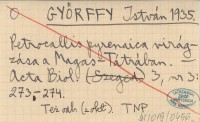 GYÖRFFY István 1935.
Petrocallis pyrenaica virág-
zása a Magas-Tátrában.
Acta Biol. (Szeged) 3, nr 3:
273-274.
TNP